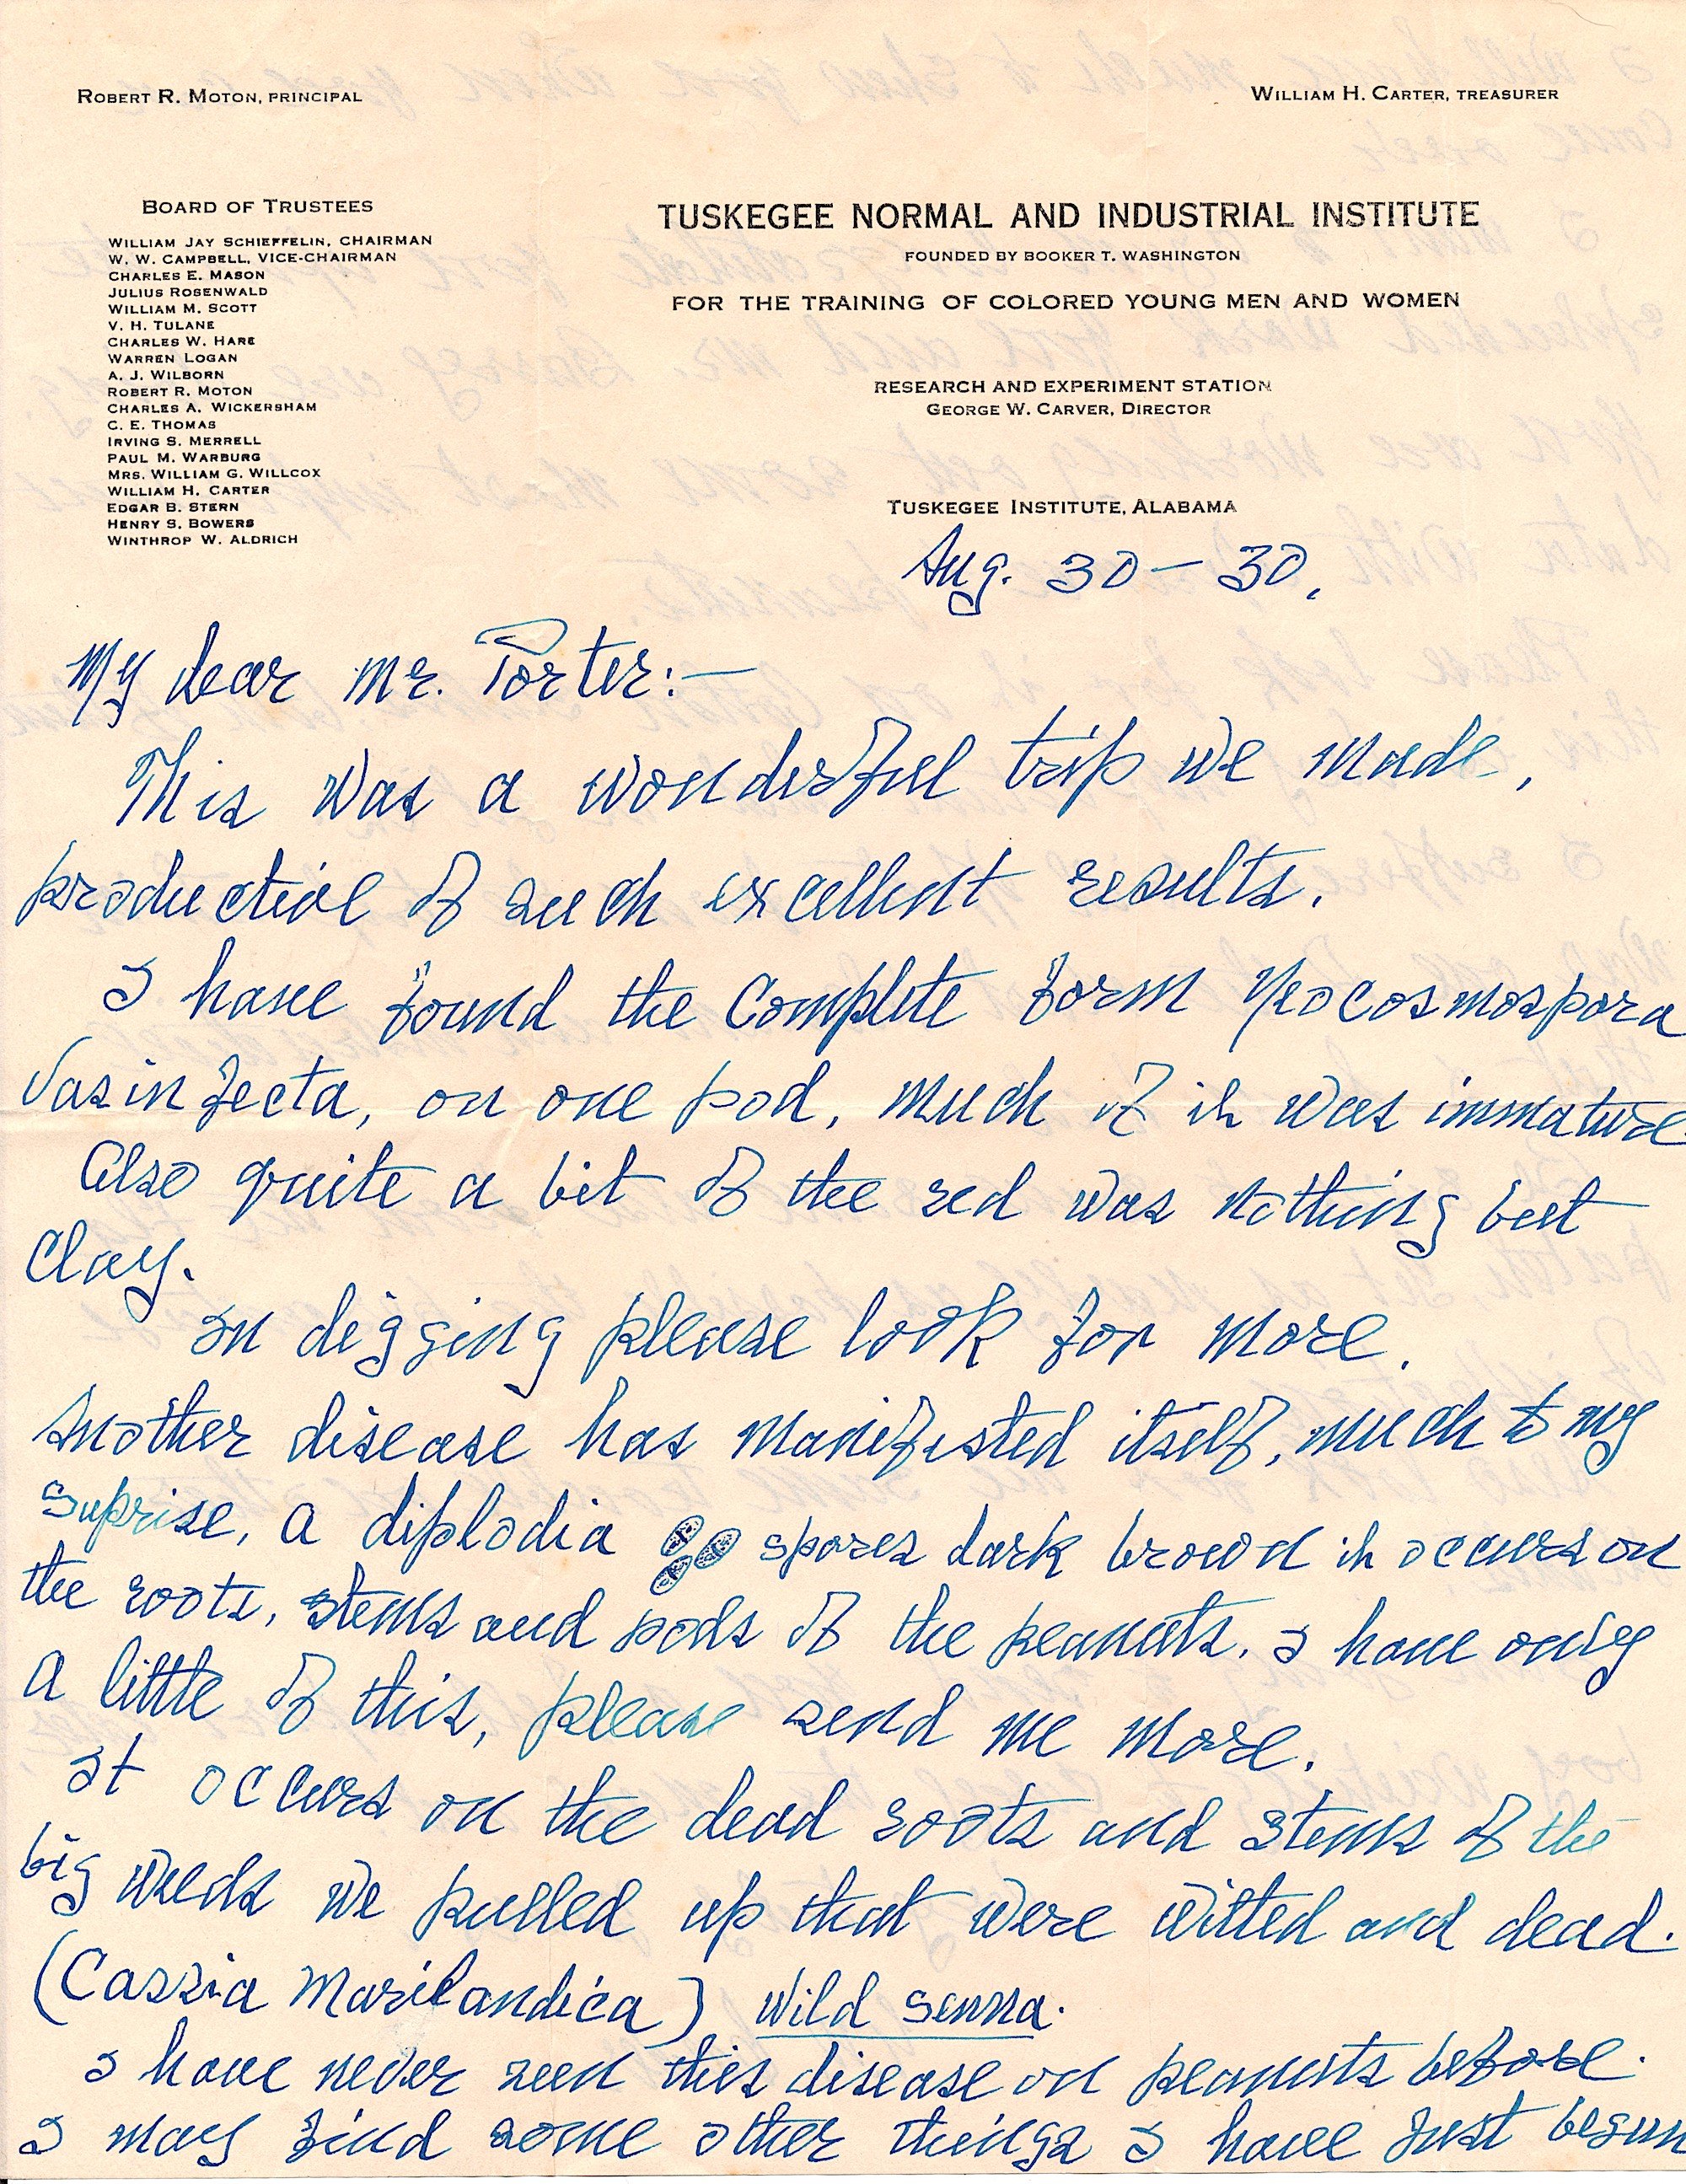 ROBERT R. MOTON, PRINCIPAL
WILLIAM H. CARTER, TREASURER
BOARD OF TRUSTEES
WILLIAM JAY SCHIEFFELIN, CHAIRMAN
W. W. CAMPBELL, VICE-CHAIRMAN
CHARLES E. MASON
JULIUS ROSENWALD
WILLIAM M. SCOTT
V. H. TULANE
CHARLES W. HARE
WARREN LOGAN
A. J. WILBORN
ROBERT R. MOTON
CHARLES A. WICKERSHAM
C. E. THOMAS
IRVING S. MERRELL
PAUL M. WARBURG
MRS. WILLIAM G. WILLCOX
WILLIAM H. CARTER
EDGAR B. STERN
HENRY S. BOWERS
WINTHROP W. ALDRICH
TUSKEGEE NORMAL AND INDUSTRIAL INSTITUTE
FOUNDED BY BOOKER T. WASHINGTON
FOR THE TRAINING OF COLORED YOUNG MEN AND WOMEN
RESEARCH AND EXPERIMENT STATION
GEORGE W. CARVER, DIRECTOR
TUSKEGEE INSTITUTE, ALABAMA
Aug. 30 – 30.
My dear Mr. Porter:—
This was a wonderful trip we made,
productive of such excellent results.
I have found the Complete form Neocosmospora
Vasinfecta, on one pod, much of it was immature.
Also quite a bit of the red was nothing but
Clay.
In digging please look for more.
Another disease has manifested itself, much to my
suprise, a diplodia spores dark brown it occurs on
the roots, stems and pods of the peanuts. I have only
a little of this, please send me more.
It occurs on the dead roots and stems of the
big weeds we pulled up that were wilted and dead.
(Cassia Marilandica) wild senna.
I have never seen this disease on peanuts before.
I may find some other things I have just begun